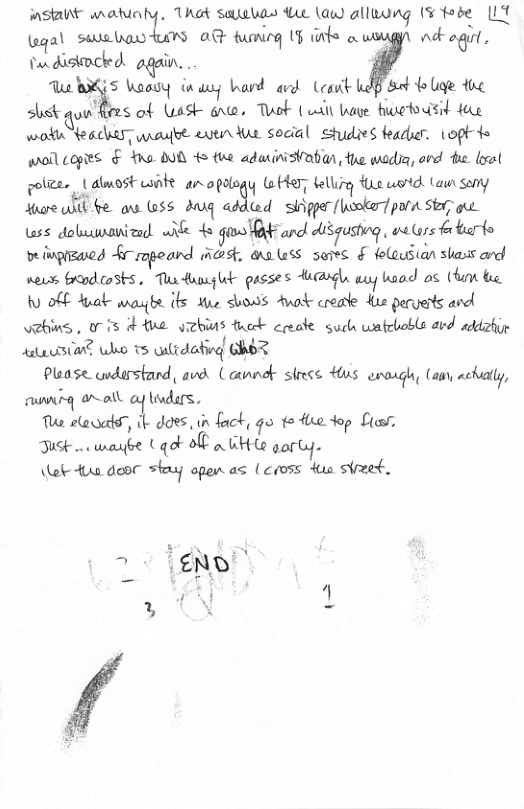 instant maturity. That somehow the law allowing 18 to be 119
legal somehow turns a 17 turning 18 into a woman not a girl.
i'm distracted again...
The ax is heavy in my hand and I can't help but to hope the
shot gun fires at least once. That I will have time to visit the
math teacher, maybe even the social studies teacher. i opt to
mail copies of the DVD to the administration, the media, and the local
police. I almost write an apology letter, telling the world I am sorry
there will be one less drug addicted stripper/hooker/porn star, one
less dehumanized wife to grow fat and disgusting, one less father to
be imprisoned for rape and incest. one less series of television shows and
news broadcasts. The thought passes through my head as I turn the
tv off that maybe its the shows that create the perverts and
victims, or is it the victims that create such watchable and addictive
television? who is validating who?
Please understand, and I cannot stress this enough, I am, actually,
running on all cylinders.
The elevator, it does, in fact, go to the top floor.
Just... maybe I got off a little early.
I let the door stay open as I cross the street.
END
3 1